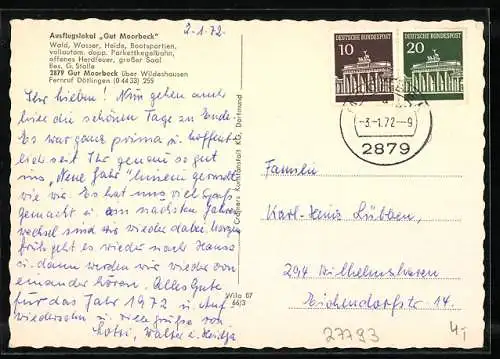 Ausflugslokal „Gut Moorbeck“
Wald, Wasser, Heide, Bootspartien,
vollautom. dopp. Parkettkegelbahn,
offenes Herdfeuer, großer Saal
Bes. G. Stolle
2879 Gut Moorbeck über Wildeshausen
Fernruf Dötlingen (0 44 33) 255
2.1.72
Ihr Lieben! Nun gehen auch
hier die schönen Tage zu Ende.
Es war ganz prima u. hoffent-
lich seit Ihr genau so gut
ins „Neue Jahr“ hinein gerutscht
wie wir. Es hat uns viel Spaß
gemacht u. am nächsten Jahres
wechsel sind wir wieder dabei. Morgen
früh geht es wieder nach Hause
u. dann werden wir wieder von
einander hören. Alles Gute
für das Jahr 1972 u. Auf
Wiedersehn u. viele Grüße von
Walter u. Heidja
Cramers Kunstanstalt KG, Dortmund
Wila 67
66/3
DEUTSCHE BUNDESPOST
10
DEUTSCHE BUNDESPOST
20
-3-1.72-9
2879
Familie
Karl-Heinz Lübben,
294 Wilhelmshaven
Eichendorfstr. 14.
27793